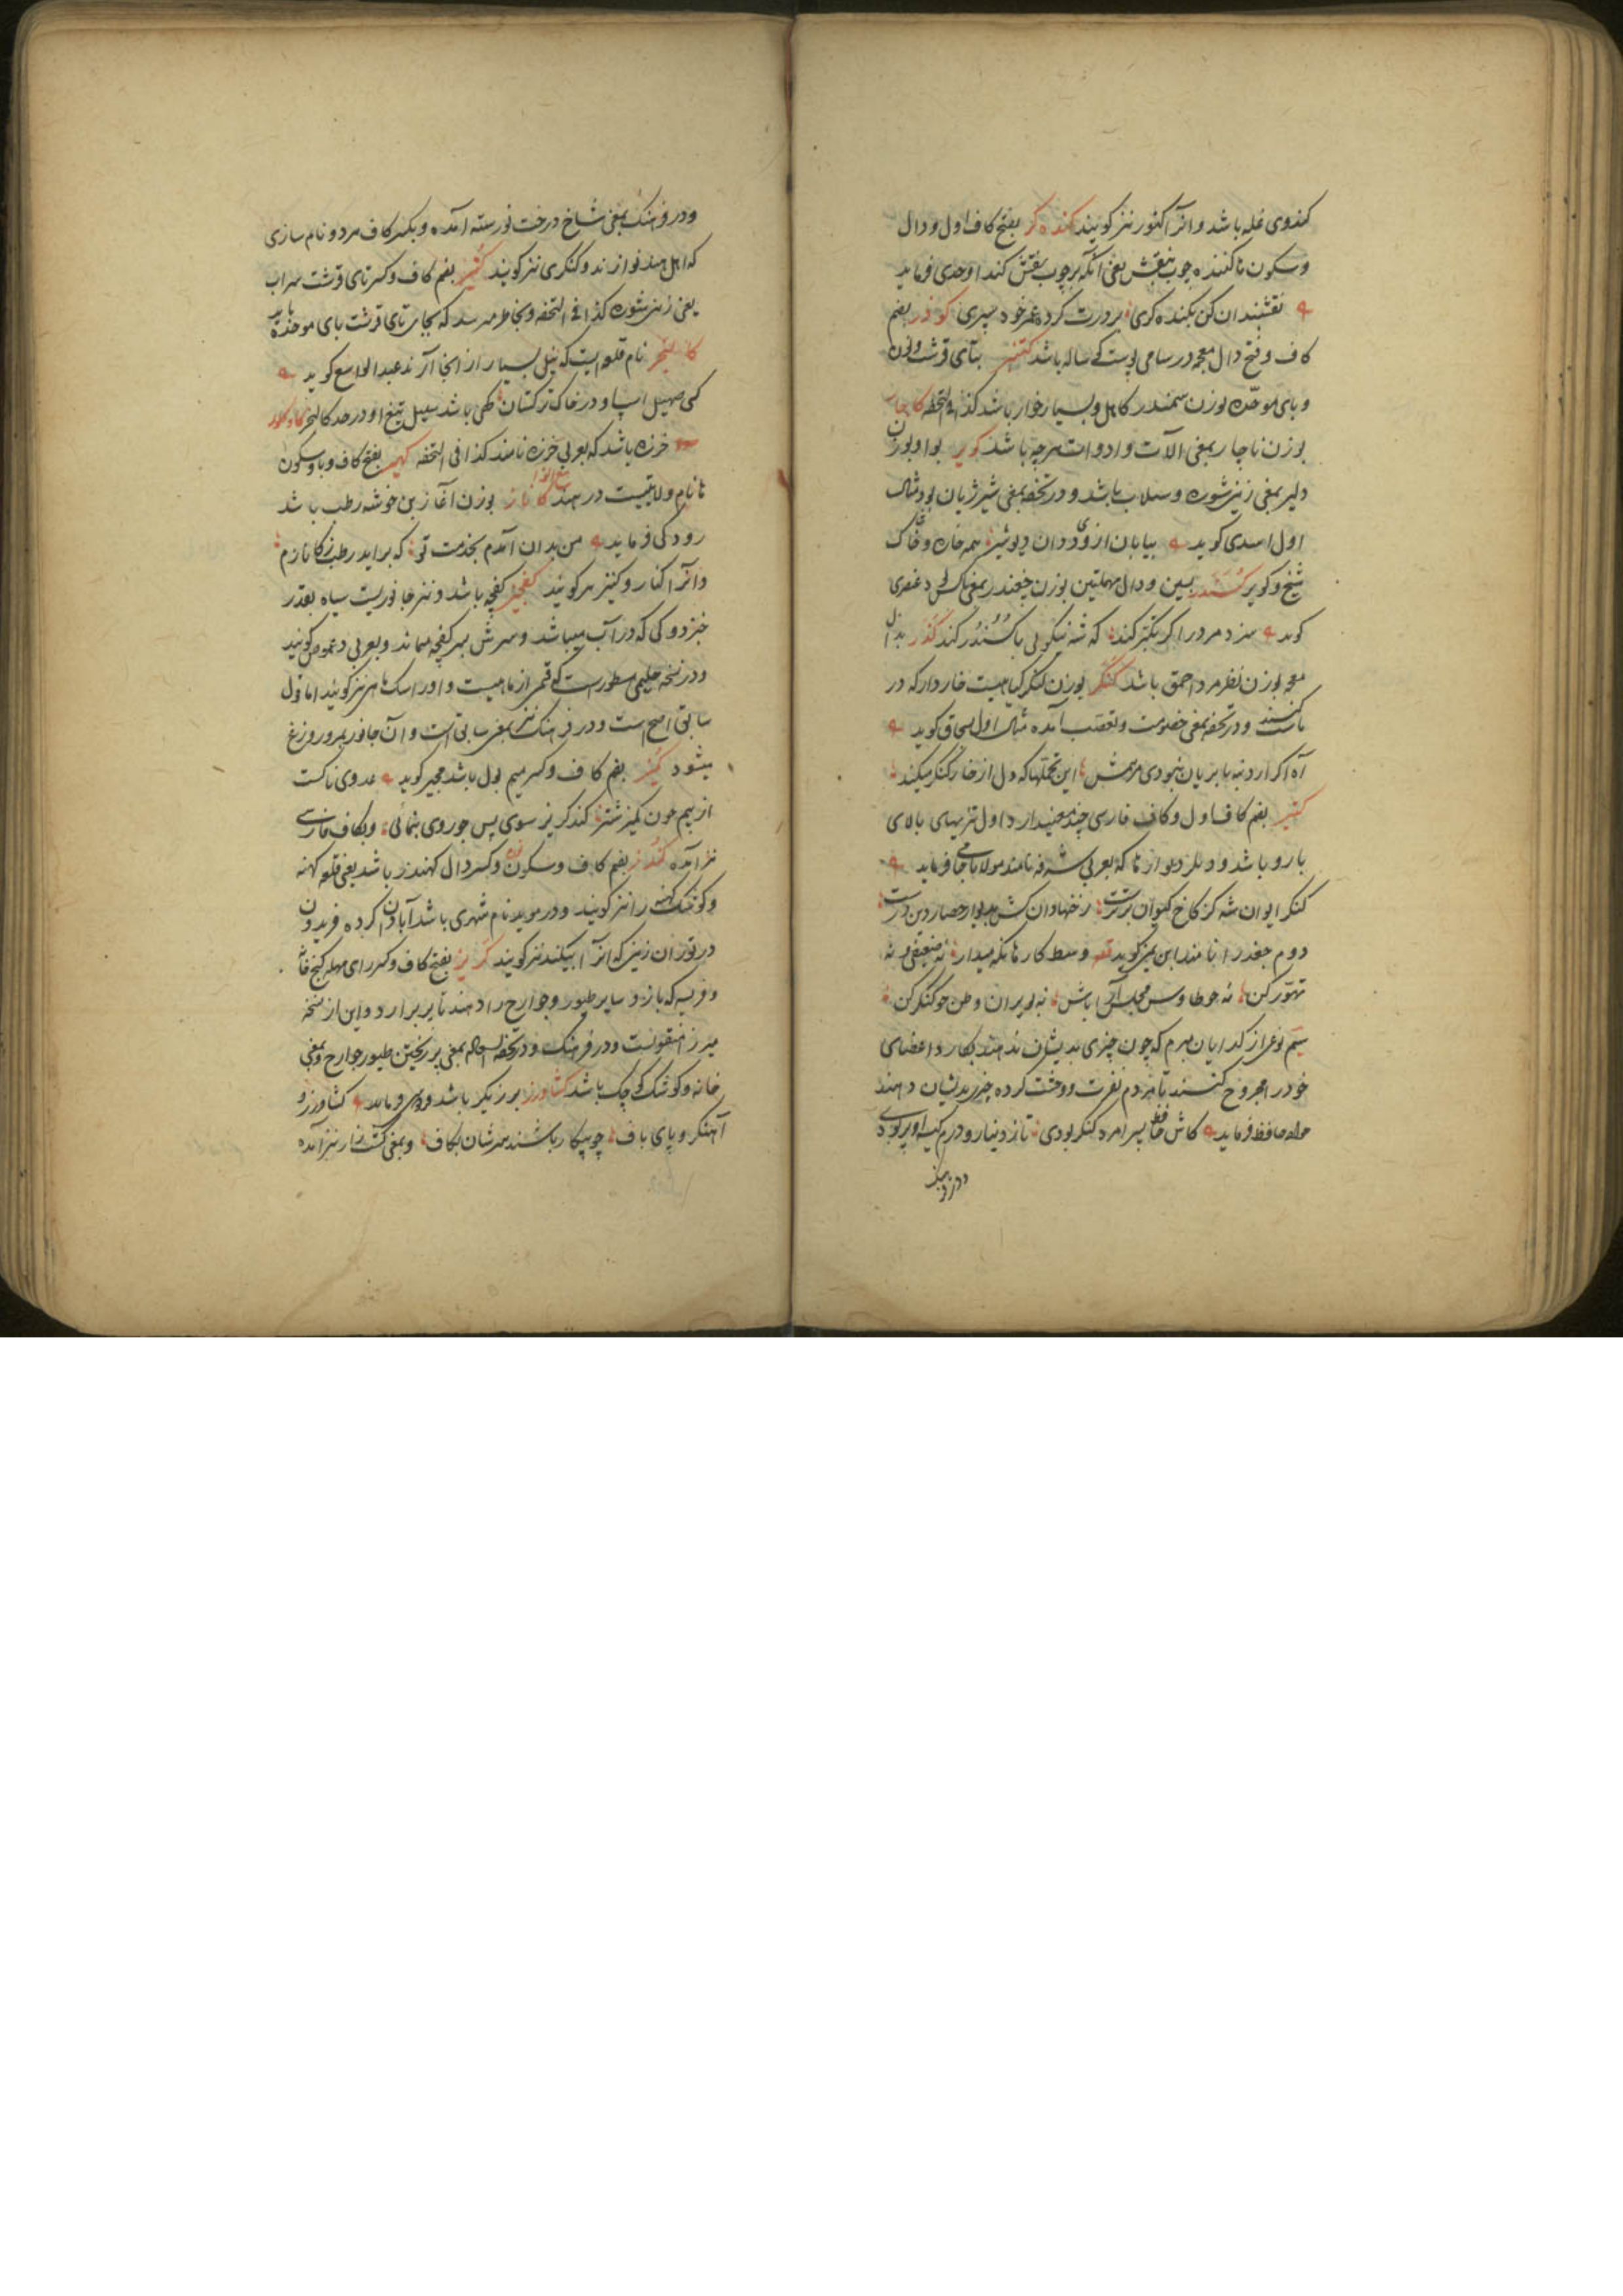 کندوی غله باشد و انرا کنور نیز گویند کنده کر بفتح کاف اول و دال
و سکون ها کننده چوب بنقش یعنی آنکه بر چوب نقش کند اوحدی فرماید
نقشبندان کن بکنده کری برورت کرده عمر خود سپری کوذر بضم
کاف و فتح دال معجمه در سامی پوست کوساله باشد کنتبر بتای قرشت و نون
و بای موحده بوزن سمندر کاهل و بسیار خوار باشد کذا فی التحفه کاچار
بوزن ناچار بمعنی الات و ادوات هرچه باشد کویر بواو بوزن
دلیر بمعنی زمین شوره و سیلاب باشد و در تحفه بمعنی شیر ژیان بود مثال
اول اسدی گوید بیابان ازو دان همه خار و خاک
شخ و کویر کسندر بسین و دال مهملتین بوزن چغندر بمعنی ناکس عنصری
گوید سزد مرد را گر تکبر کند که شه نیکویی با کسندر کند کذر بذال
معجمه بوزن نظر مرد احمق باشد کنگر بوزن لنگر گیاهیست خاردار که در
ماست کنند و در تحفه بمعنی خصومت و تعصب آمده مثال اول بسحاق گوید
آه اگر ارد نه با بریان نبودی مرهمش این تحملها که دل از خار کنگر میکند
بضم کاف اول و کاف فارسی چند معنی دارد اول تیزیهای بالای
بارو باشد و دیگر دیوارها که بعربی شرفه نامند مولانا جامی فرماید
کنگر ایوان شه کز کاخ کیوان برترست رخنها دان کش بدیوار حصار دین درست
دوم جغد را نامند ابن یمین گوید وسط کار ها نگه میدار نه ضعیفی و نه
تهور کن نه چو طاوس مجلس آرا باش نه بویران وطن چو کنگر کن
سیم نوعی از گدایان مبرم که چون چیزی بدیشان ندهند بکارد اعضای
خود را مجروح کنند تا مردم نفرت و وحشت کرده چیزی بدیشان دهند
حافظ فرماید کاش حافظ پسر امرد کنگر بودی تا ز دینار و درم کیسه او پر بودی
و در فرهنگ
و در فرهنگ بمعنی شاخ درخت نورسته آمده و بکسر کاف مرد و نام سازی
که اهل هند نوازند و کنکری نیز گویند کتیر بضم کاف و کسر تای قرشت سراب
یعنی زمین شوره کذا فی التحفه و بخاطر میرسد که بجای تای قرشت بای موحده باشد
کالنجر نام قلعه ایست که نیل بسیار از انجا آرند عبدالواسع گوید
کمی صهیل اسپ او در خاک ترکستان گهی باشد سبیل تیغ او در حد کالنجر
خرزه باشد که بعربی خرزه نامند کذا فی التحفه بفتح کاف و با و سکون
ها نام ولایتیست در هند کاناز بوزن آغاز بن خوشه رطب باشد
رودکی فرماید من بدان آمدم بخدمت تو که براید رطب ز کانازم
و انرا کناز و کنیز هم گویند کفچلیز کفچه باشد و نیز جانوریست سیاه بقدر
خبزدوکی که در آب میباشد و سرش بسر کفچه میماند و بعربی دعموص گویند
و در نسخه حلیمی مسطورست که قسمی از ماهیست و او را سگ ماهی نیز گویند اما قول
سابق اصح است و در فرهنگ نیز بمعنی سابق است و آن جانور بمرور وزغ
میشود کمیز بضم کاف و کسر میم بول باشد مجیر گوید عدوی ناکست
از بیم چون کمیز شتر کند گریز سوی پس چو روی بنمائی و بکاف فارسی
نیز آمده کندز بضم کاف و سکون نون و کسر دال کهندز باشد یعنی قلعه کهنه
و کوشک کهنه را نیز گویند و در موید نام شهری باشد آبادان کرده فریدون
در توران زمین که انرا بیکند نیز گویند کریز بفتح کاف و کسر رای مهمله کنج خانه
و غریبه که باز و سایر طیور و جوارح را دهند تا پر برارد و این از نسخه
میرزا منقولست و در فرهنگ و در تحفه السعاده بمعنی پر ریختن طیور جوارح و بمعنی
خانه و کوشک کوچک باشد کشاورز برزیگر باشد فردوسی فرماید کشاورز و
آهنگر و پای باف چو بیکار باشند سرشان بکاف و بمعنی کشتزار نیز آمده